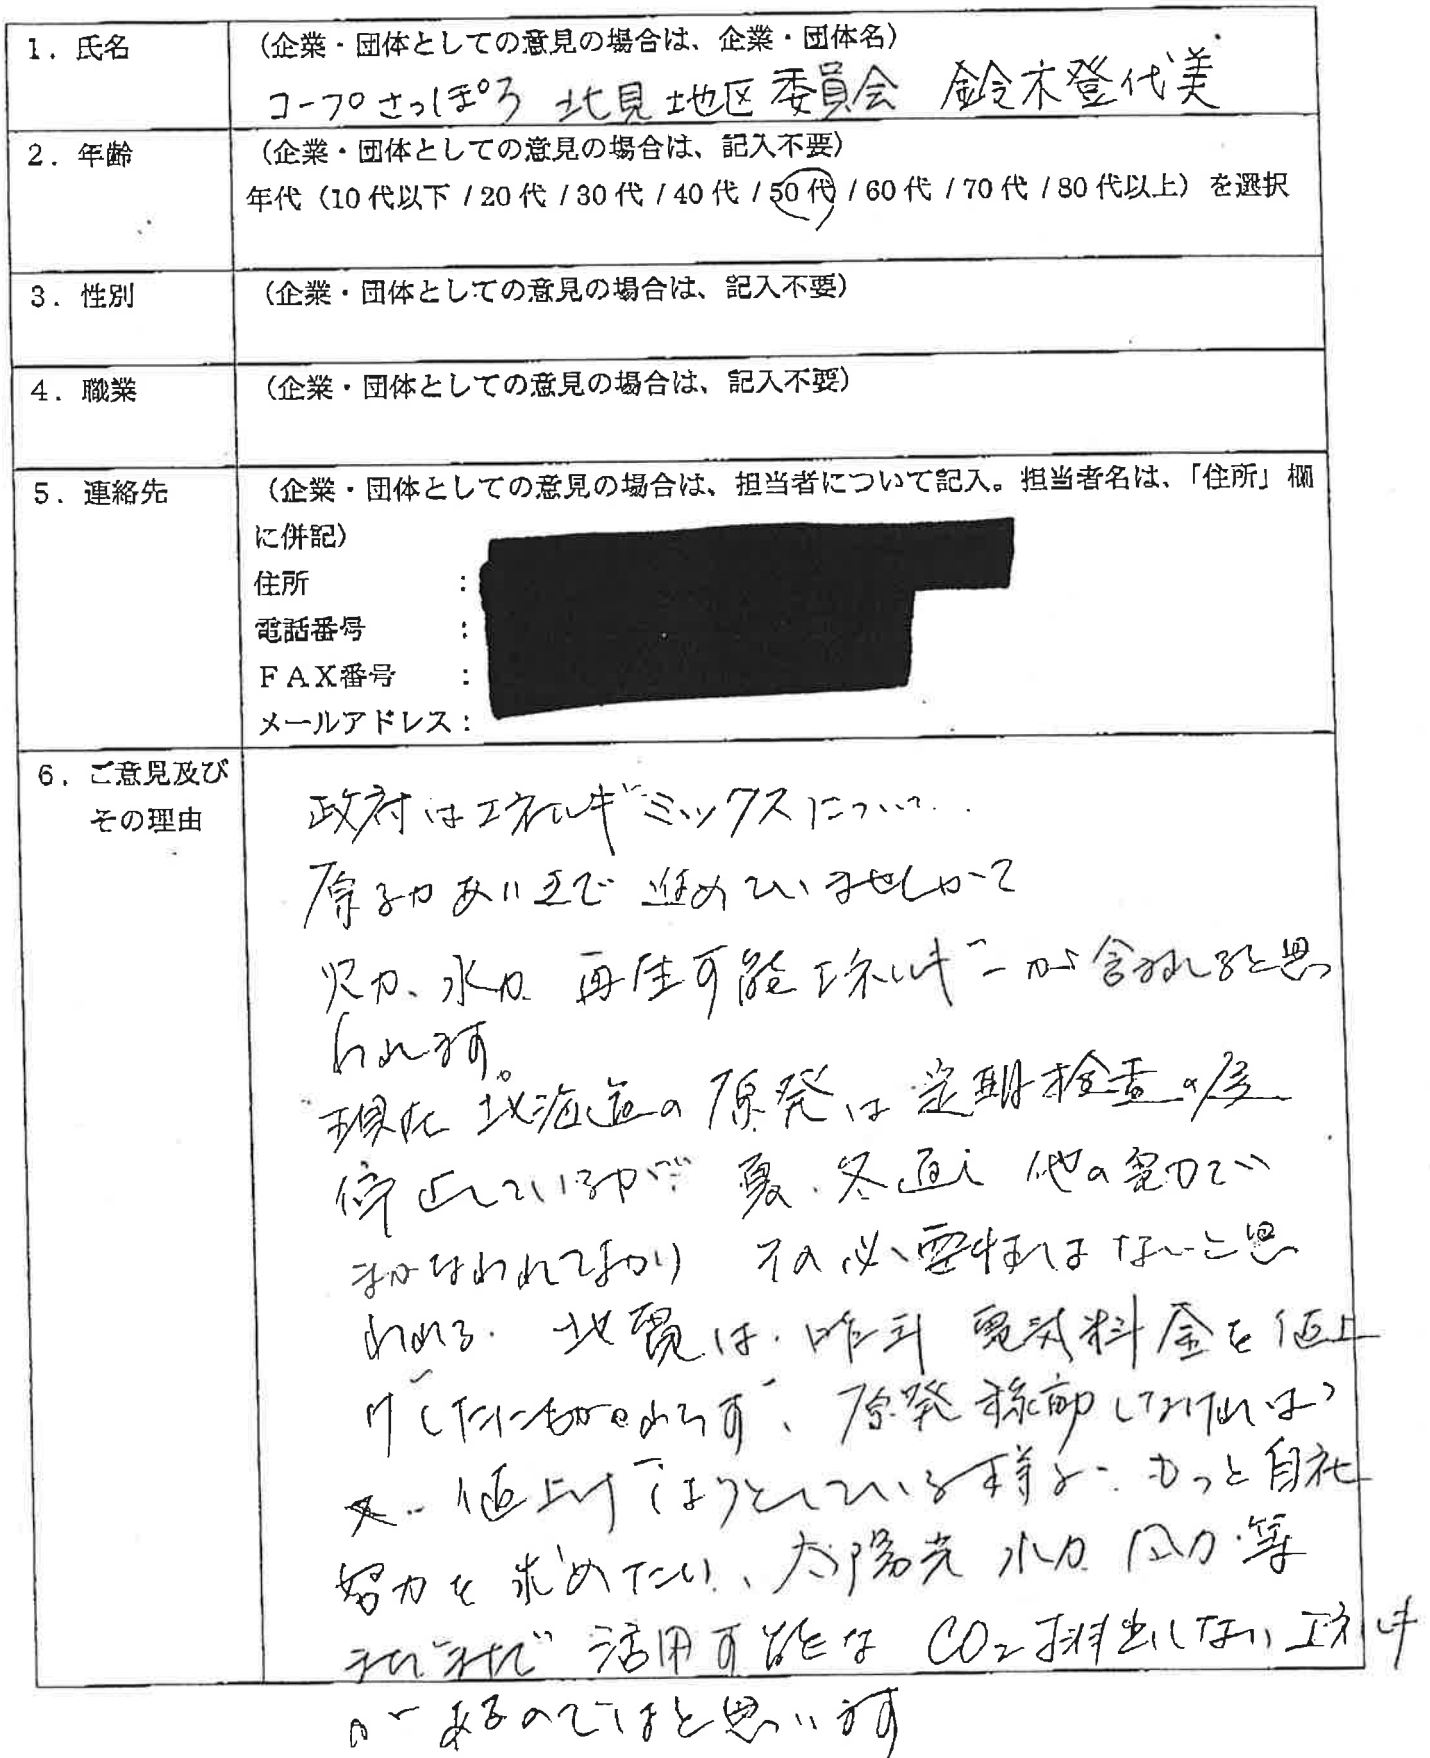 1. 氏名
(企業・団体としての意見の場合は、企業・団体名)
コープさっぽろ 北見地区委員会 鈴木登代美
2. 年齢
(企業・団体としての意見の場合は、記入不要)
年代(10代以下 / 20代 / 30代 / 40代 / 50代 / 60代 / 70代 / 80代以上)を選択
3. 性別
(企業・団体としての意見の場合は、記入不要)
4. 職業
(企業・団体としての意見の場合は、記入不要)
5. 連絡先
(企業・団体としての意見の場合は、担当者について記入。担当者名は、「住所」欄
に併記)
住所 :
電話番号 :
FAX番号 :
メールアドレス:
6. ご意見及び
その理由
政府はエネルギミックスについて..
原子力ありきで進めていませんかて
火力、水力、再生可能エネルギーが含まれると思
われます。
現在 北海道の原発は定期検査の為
停止しているが 夏、冬通し 他の電力で
まかなわれており その必要性はないと思
われる. 北電は、昨年 電気料金を値上
げしたにもかかわらず、原発稼働しなければ
又.. 値上げしようとしている様子. もっと自社
努力を求めたい、太陽光 水力 風力 等
まだまだ 活用可能な CO2排出しないエネルギ
があるのではと思います